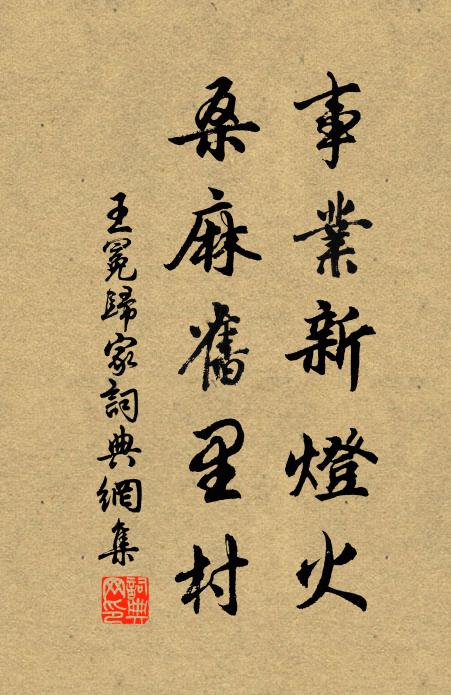 事業新燈火
桑麻舊里村
王冕歸家詞典網集
詞典网印